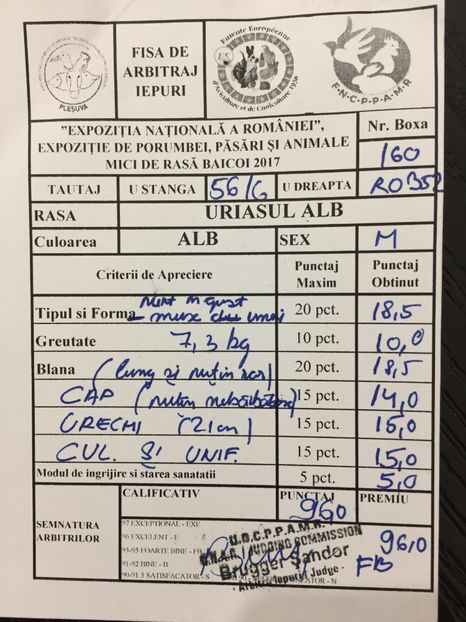 PLEȘUVA
FISA DE
ARBITRAJ
IEPURI
Entente Européenne
d'Aviculture et de Cuniculture 1938
F.N.C.P.P.A.M.R
"EXPOZIȚIA NAȚIONALĂ A ROMÂNIEI",
EXPOZIȚIE DE PORUMBEI, PĂSĂRI ȘI ANIMALE
MICI DE RASĂ BAICOI 2017
Nr. Boxa
160
TAUTAJ U STANGA 56/6 U DREAPTA ROB52
RASA URIASUL ALB
Culoarea ALB SEX M
Criterii de Apreciere Punctaj Maxim Punctaj Obtinut
Tipul si Forma 20 pct. 18,5
Greutate 7,3 kg 10 pct. 10,0
Blana (lung și puțin rar) 20 pct. 18,5
CAP (puțin 15 pct. 14,0
URECHI (21 cm) 15 pct. 15,0
CUL. ȘI UNIF. 15 pct. 15,0
Modul de ingrijire si starea sanatatii 5 pct. 5,0
CALIFICATIV PUNCTAJ PREMIU
960
SEMNATURA
ARBITRILOR
97 EXCEPTIONAL - EXE
96 EXCELENT - E
93-95 FOARTE BINE - FB
91-92 BINE - B
90-91.5 SATISFACATOR - S
U.G.C.P.P.A.M.R.
JUDGING COMMISSION
Brugger Sandor
Iepuri/ Judge
96,0
FB